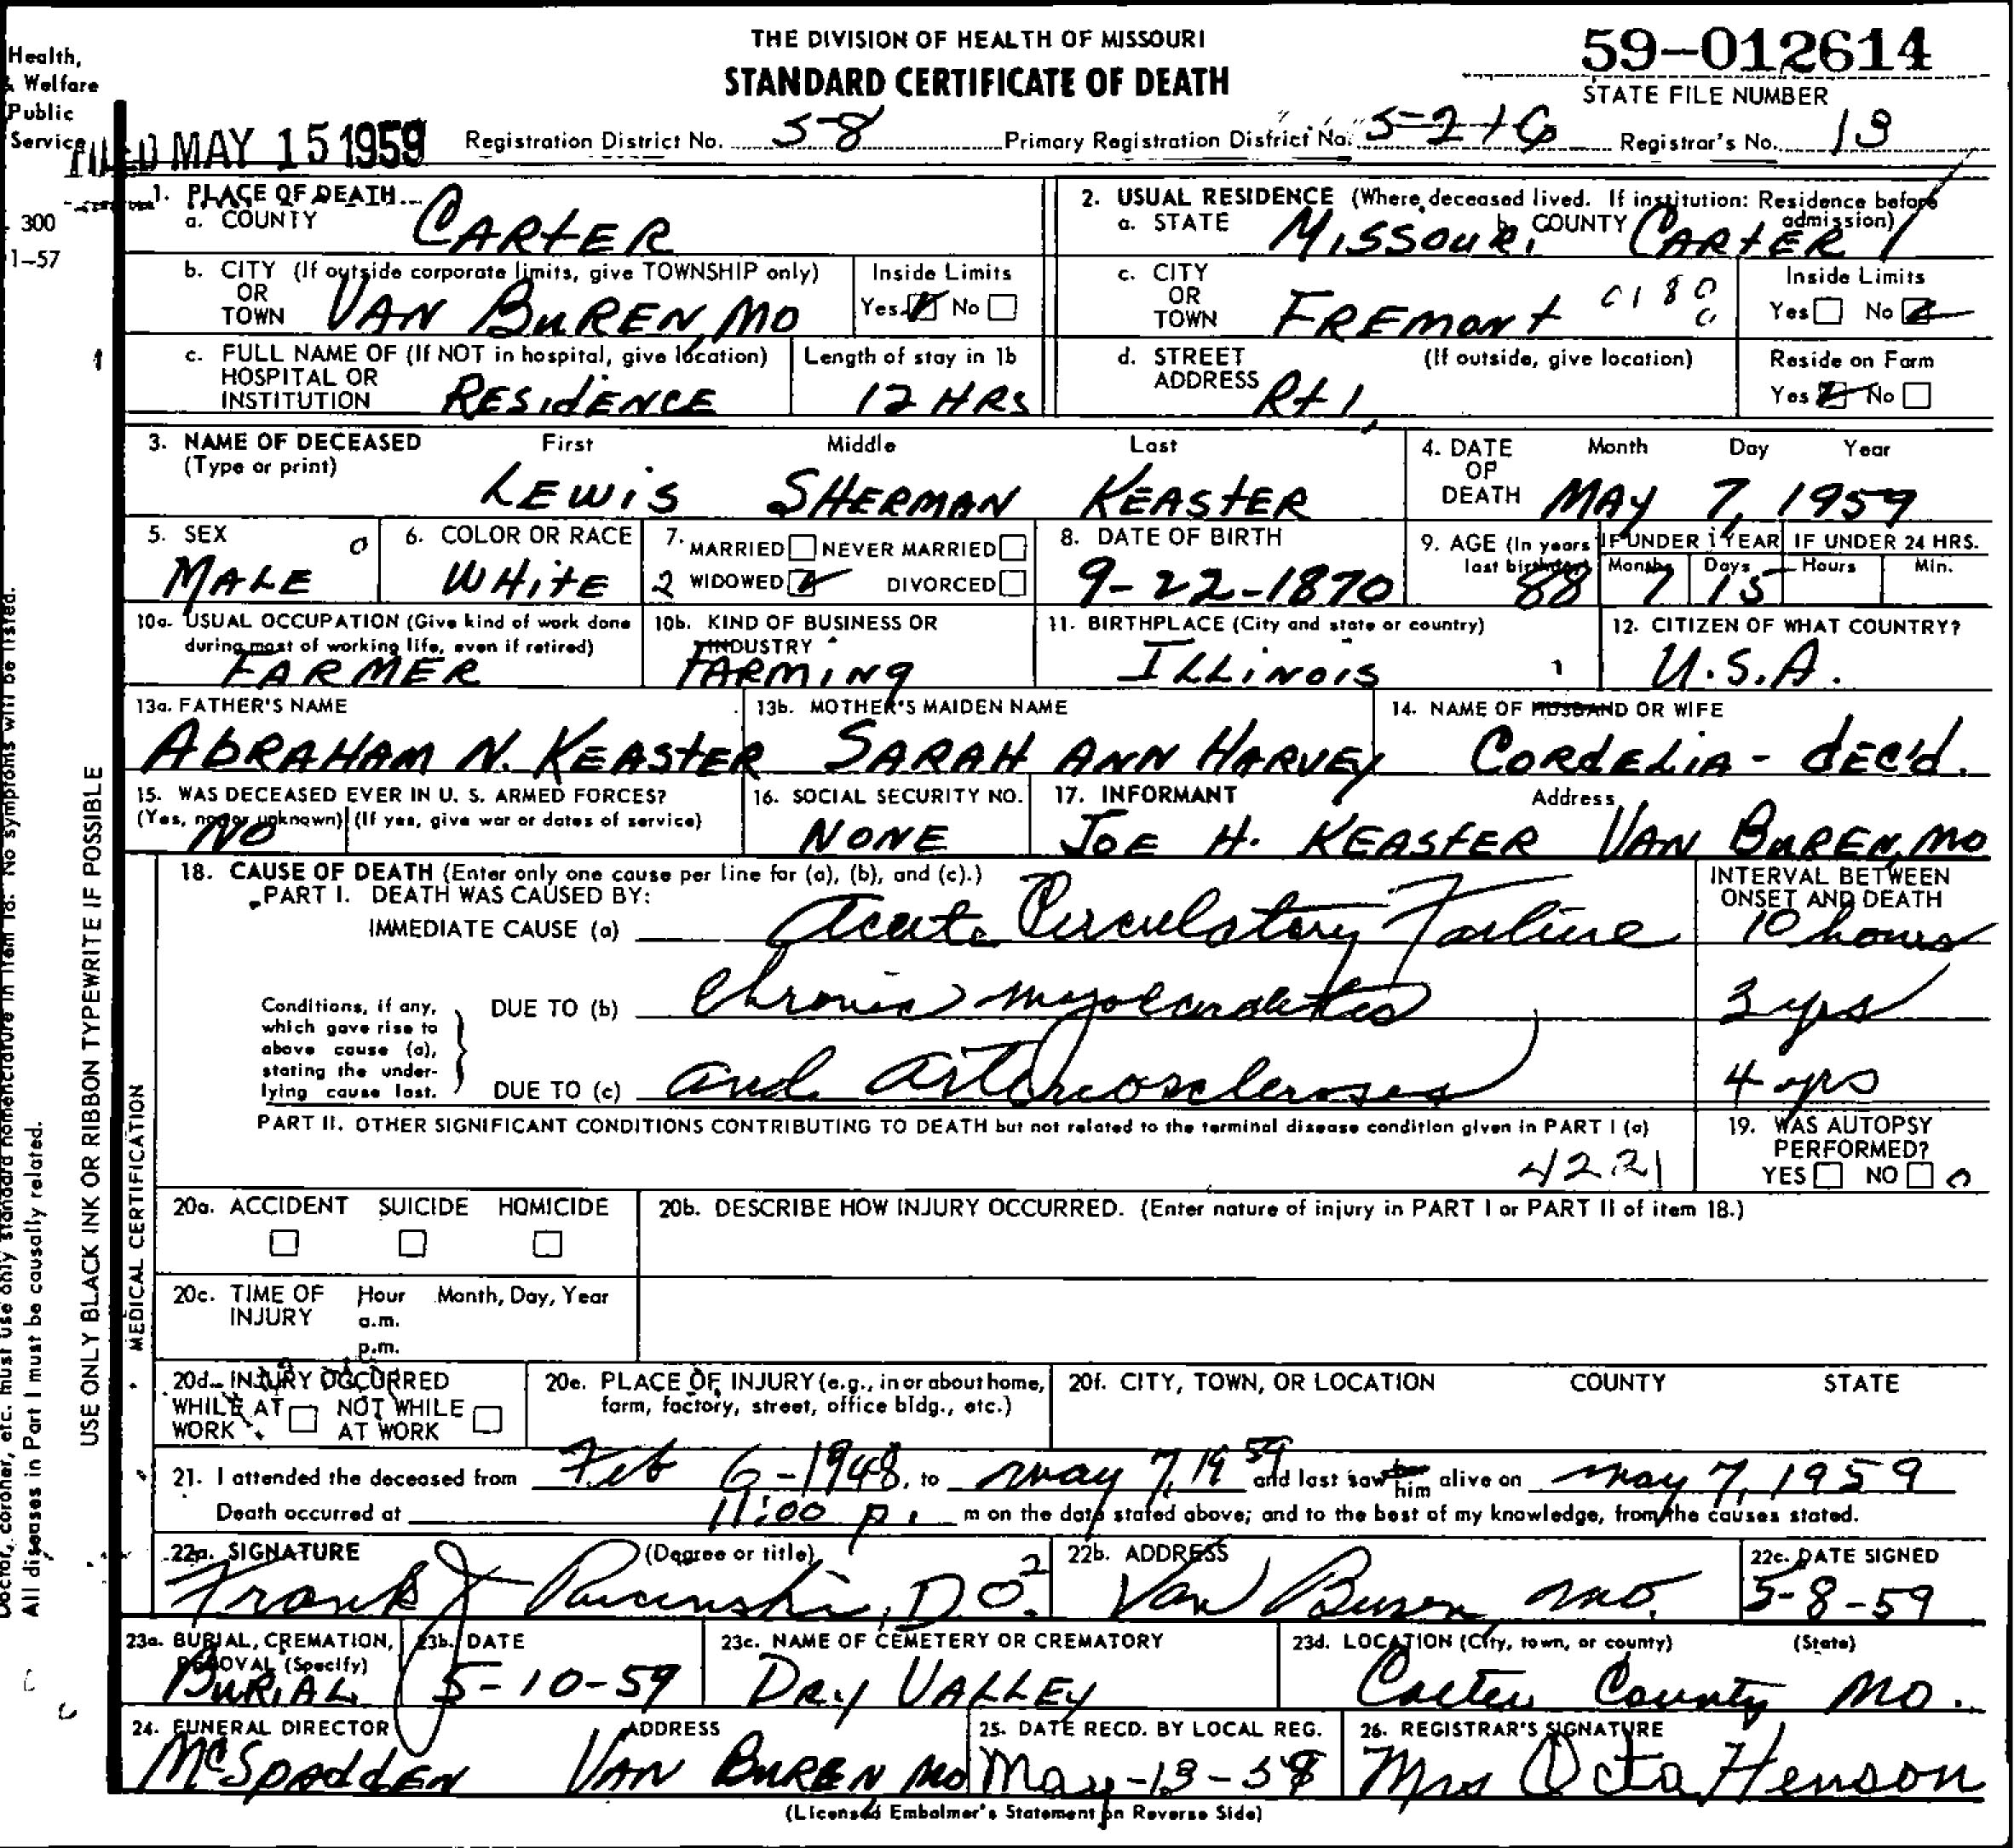 THE DIVISION OF HEALTH OF MISSOURI
STANDARD CERTIFICATE OF DEATH
59-012614
STATE FILE NUMBER
Health,
& Welfare
Public
Service
FILED MAY 15 1959 Registration District No. 58 Primary Registration District No. 5216 Registrar's No. 13
300
1-57
1. PLACE OF DEATH
a. COUNTY CARTER
2. USUAL RESIDENCE (Where deceased lived. If institution: Residence before admission)
a. STATE MISSOURI b. COUNTY CARTER
b. CITY (If outside corporate limits, give TOWNSHIP only) OR TOWN VAN BUREN, MO
Inside Limits Yes No
c. CITY OR TOWN FREMONT 0180
Inside Limits Yes No
c. FULL NAME OF (If NOT in hospital, give location) HOSPITAL OR INSTITUTION RESIDENCE
Length of stay in 1b 12 HRS
d. STREET ADDRESS (If outside, give location) Rt 1
Reside on Farm Yes No
3. NAME OF DECEASED (Type or print) First Middle Last
LEWIS SHERMAN KEASTER
4. DATE OF DEATH Month Day Year
MAY 7, 1959
5. SEX MALE 0
6. COLOR OR RACE WHITE
7. MARRIED NEVER MARRIED
2 WIDOWED DIVORCED
8. DATE OF BIRTH 9-22-1870
9. AGE (In years last birthday) 88 IF UNDER 1 YEAR Months 7 Days 15 IF UNDER 24 HRS. Hours Min.
10a. USUAL OCCUPATION (Give kind of work done during most of working life, even if retired) FARMER
10b. KIND OF BUSINESS OR INDUSTRY FARMING
11. BIRTHPLACE (City and state or country) ILLINOIS 1
12. CITIZEN OF WHAT COUNTRY? U.S.A.
13a. FATHER'S NAME ABRAHAM N. KEASTER
13b. MOTHER'S MAIDEN NAME SARAH ANN HARVEY
14. NAME OF HUSBAND OR WIFE CORDELIA - dEC'd.
15. WAS DECEASED EVER IN U. S. ARMED FORCES? (Yes, no, or unknown) (If yes, give war or dates of service) NO
16. SOCIAL SECURITY NO. NONE
17. INFORMANT Address JOE H. KEASTER VAN BUREN, MO
18. CAUSE OF DEATH (Enter only one cause per line for (a), (b), and (c).)
INTERVAL BETWEEN ONSET AND DEATH
PART I. DEATH WAS CAUSED BY:
IMMEDIATE CAUSE (a) Acute Circulatory Failure 10 hours
Conditions, if any, which gave rise to above cause (a), stating the underlying cause last.
DUE TO (b) Chronic myocarditis 3 yrs
DUE TO (c) and arteriosclerosis 4 yrs
PART II. OTHER SIGNIFICANT CONDITIONS CONTRIBUTING TO DEATH but not related to the terminal disease condition given in PART I (a)
4221
19. WAS AUTOPSY PERFORMED?
YES NO 0
20a. ACCIDENT SUICIDE HOMICIDE
20b. DESCRIBE HOW INJURY OCCURRED. (Enter nature of injury in PART I or PART II of item 18.)
20c. TIME OF INJURY Hour Month, Day, Year
a.m.
p.m.
20d. INJURY OCCURRED
WHILE AT WORK NOT WHILE AT WORK
20e. PLACE OF INJURY (e.g., in or about home, farm, factory, street, office bldg., etc.)
20f. CITY, TOWN, OR LOCATION COUNTY STATE
21. I attended the deceased from Feb 6-1948, to May 7, 1959 and last saw him alive on May 7, 1959
Death occurred at 11:00 P. m on the date stated above; and to the best of my knowledge, from the causes stated.
22a. SIGNATURE (Degree or title) Frank J, D.O. 2
22b. ADDRESS Van Buren Mo.
22c. DATE SIGNED 5-8-59
23a. BURIAL, CREMATION, REMOVAL (Specify) BURIAL
23b. DATE 5-10-59
23c. NAME OF CEMETERY OR CREMATORY DRY VALLEY
23d. LOCATION (City, town, or county) (State) Carter County MO.
24. FUNERAL DIRECTOR ADDRESS McSPADDEN VAN BUREN MO
25. DATE RECD. BY LOCAL REG. May-13-59
26. REGISTRAR'S SIGNATURE Mrs Octa Henson
(Licensed Embalmer's Statement on Reverse Side)
Doctor, coroner, etc. must use only standard nomenclature in item 18. No symptoms will be listed.
All diseases in Part I must be causally related.
USE ONLY BLACK INK OR RIBBON TYPEWRITE IF POSSIBLE
MEDICAL CERTIFICATION